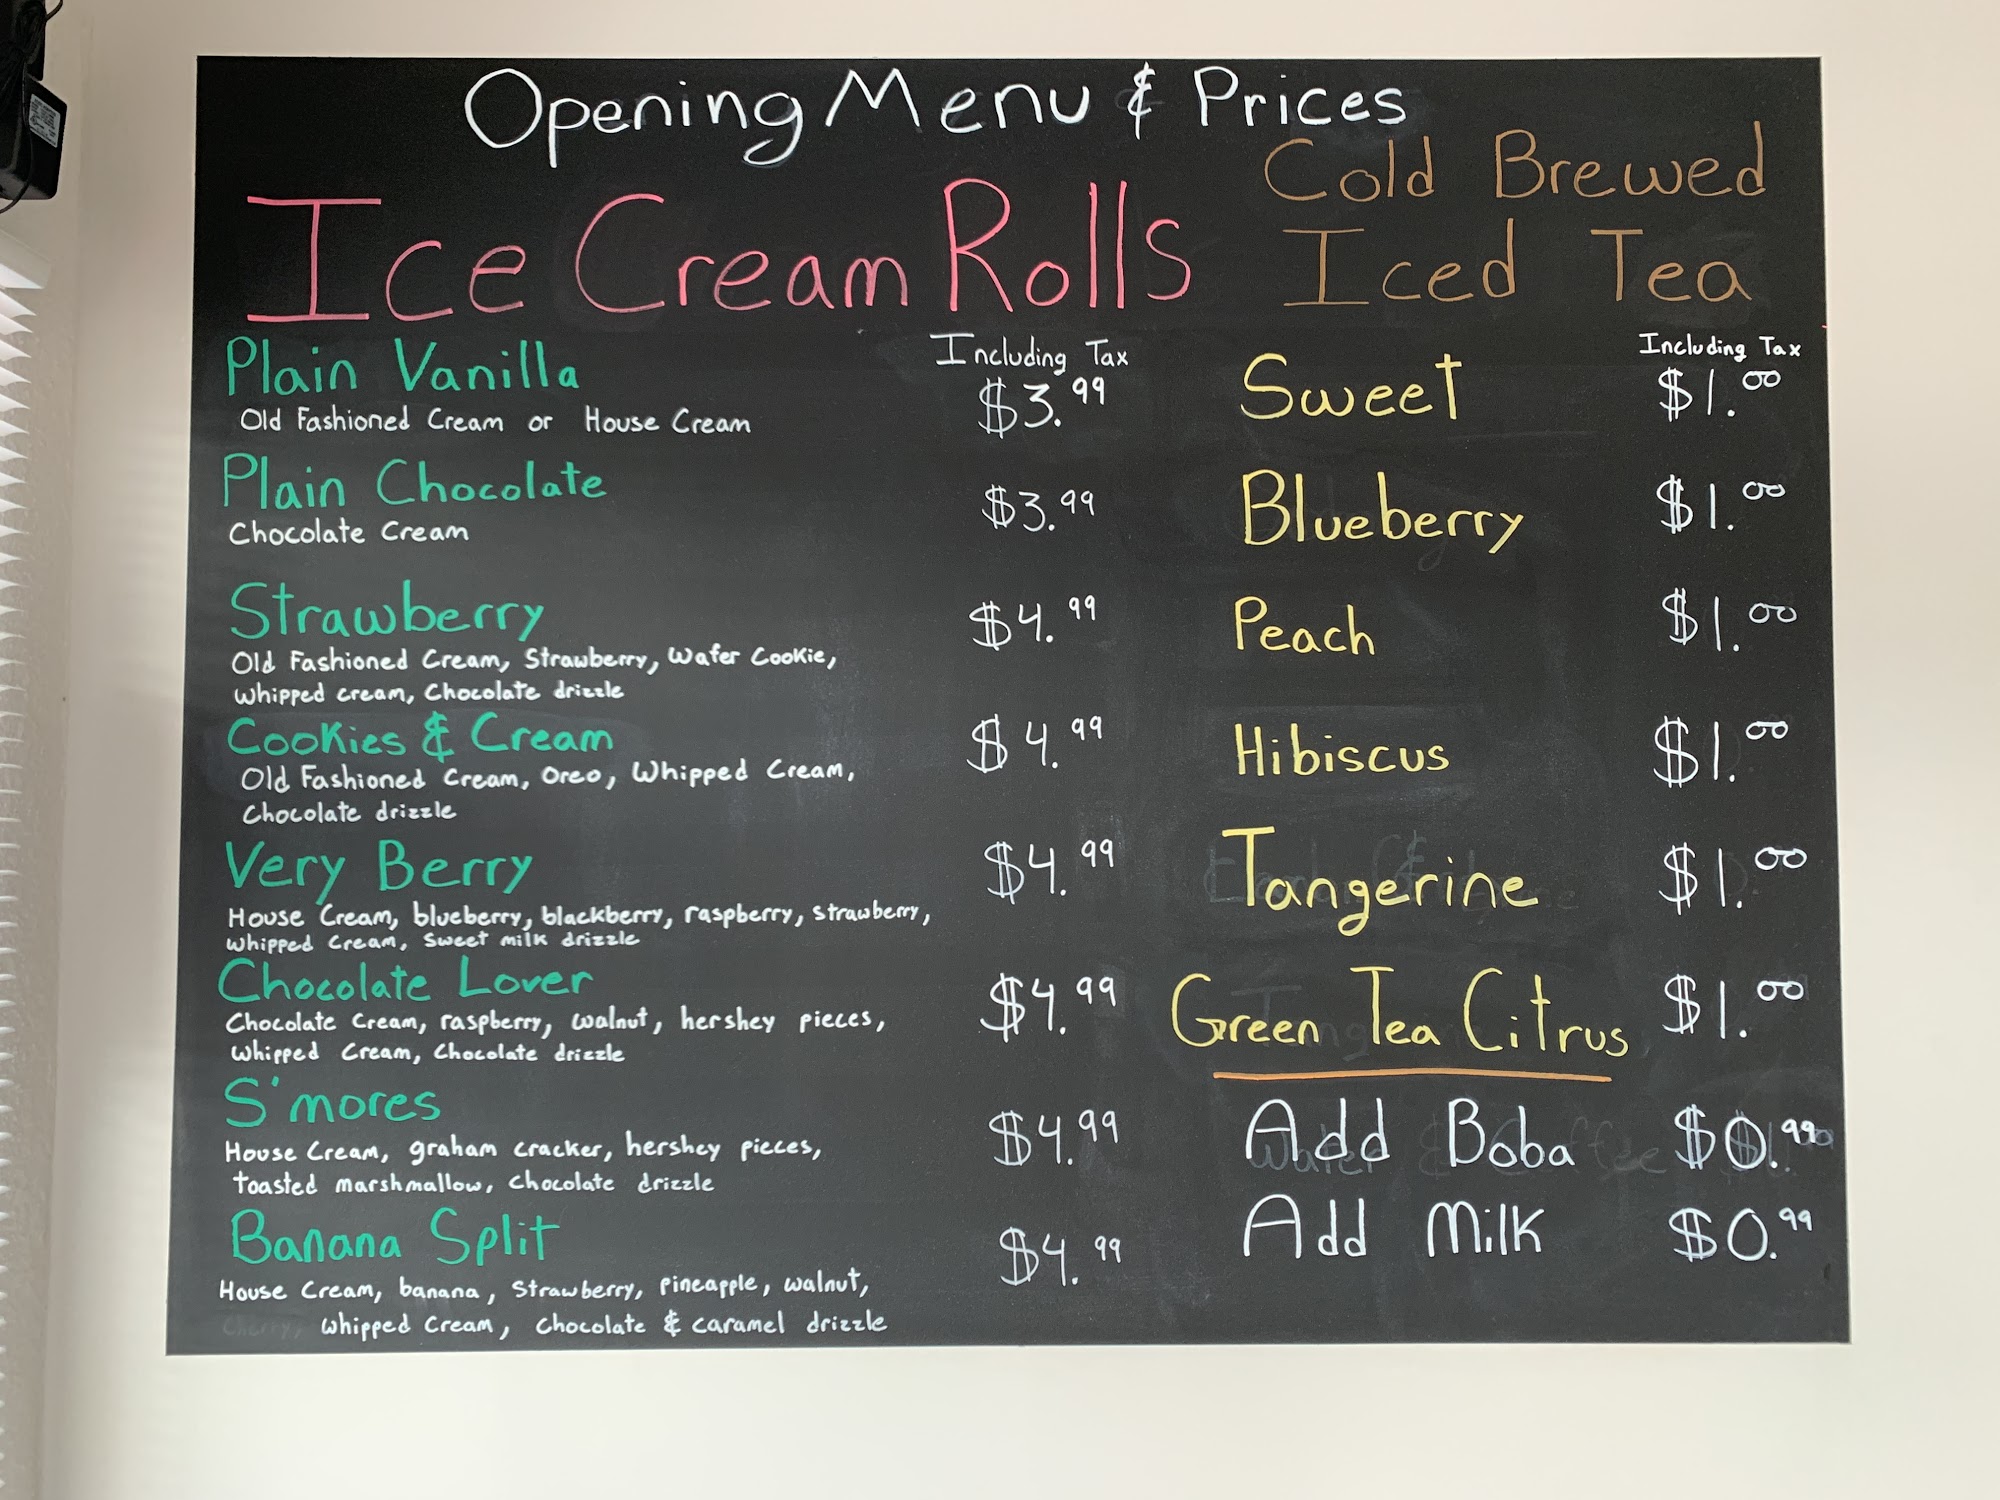 Opening Menu & Prices
Ice Cream Rolls
Including Tax
Plain Vanilla $3.99
Old Fashioned Cream or House Cream
Plain Chocolate $3.99
Chocolate Cream
Strawberry $4.99
Old Fashioned Cream, Strawberry, Wafer Cookie,
Whipped cream, Chocolate drizzle
Cookies & Cream $4.99
Old Fashioned Cream, Oreo, Whipped Cream,
Chocolate drizzle
Very Berry $4.99
House Cream, blueberry, blackberry, raspberry, strawberry,
Whipped Cream, Sweet milk drizzle
Chocolate Lover $4.99
Chocolate Cream, raspberry, walnut, hershey pieces,
Whipped Cream, Chocolate drizzle
S'mores $4.99
House Cream, graham cracker, hershey pieces,
toasted marshmallow, Chocolate drizzle
Banana Split $4.99
House Cream, banana, Strawberry, pineapple, walnut,
Cherry, Whipped Cream, Chocolate & caramel drizzle
Cold Brewed
Iced Tea
Including Tax
Sweet $1.00
Blueberry $1.00
Peach $1.00
Hibiscus $1.00
Tangerine $1.00
Green Tea Citrus $1.00
Add Boba $0.99
Add Milk $0.99